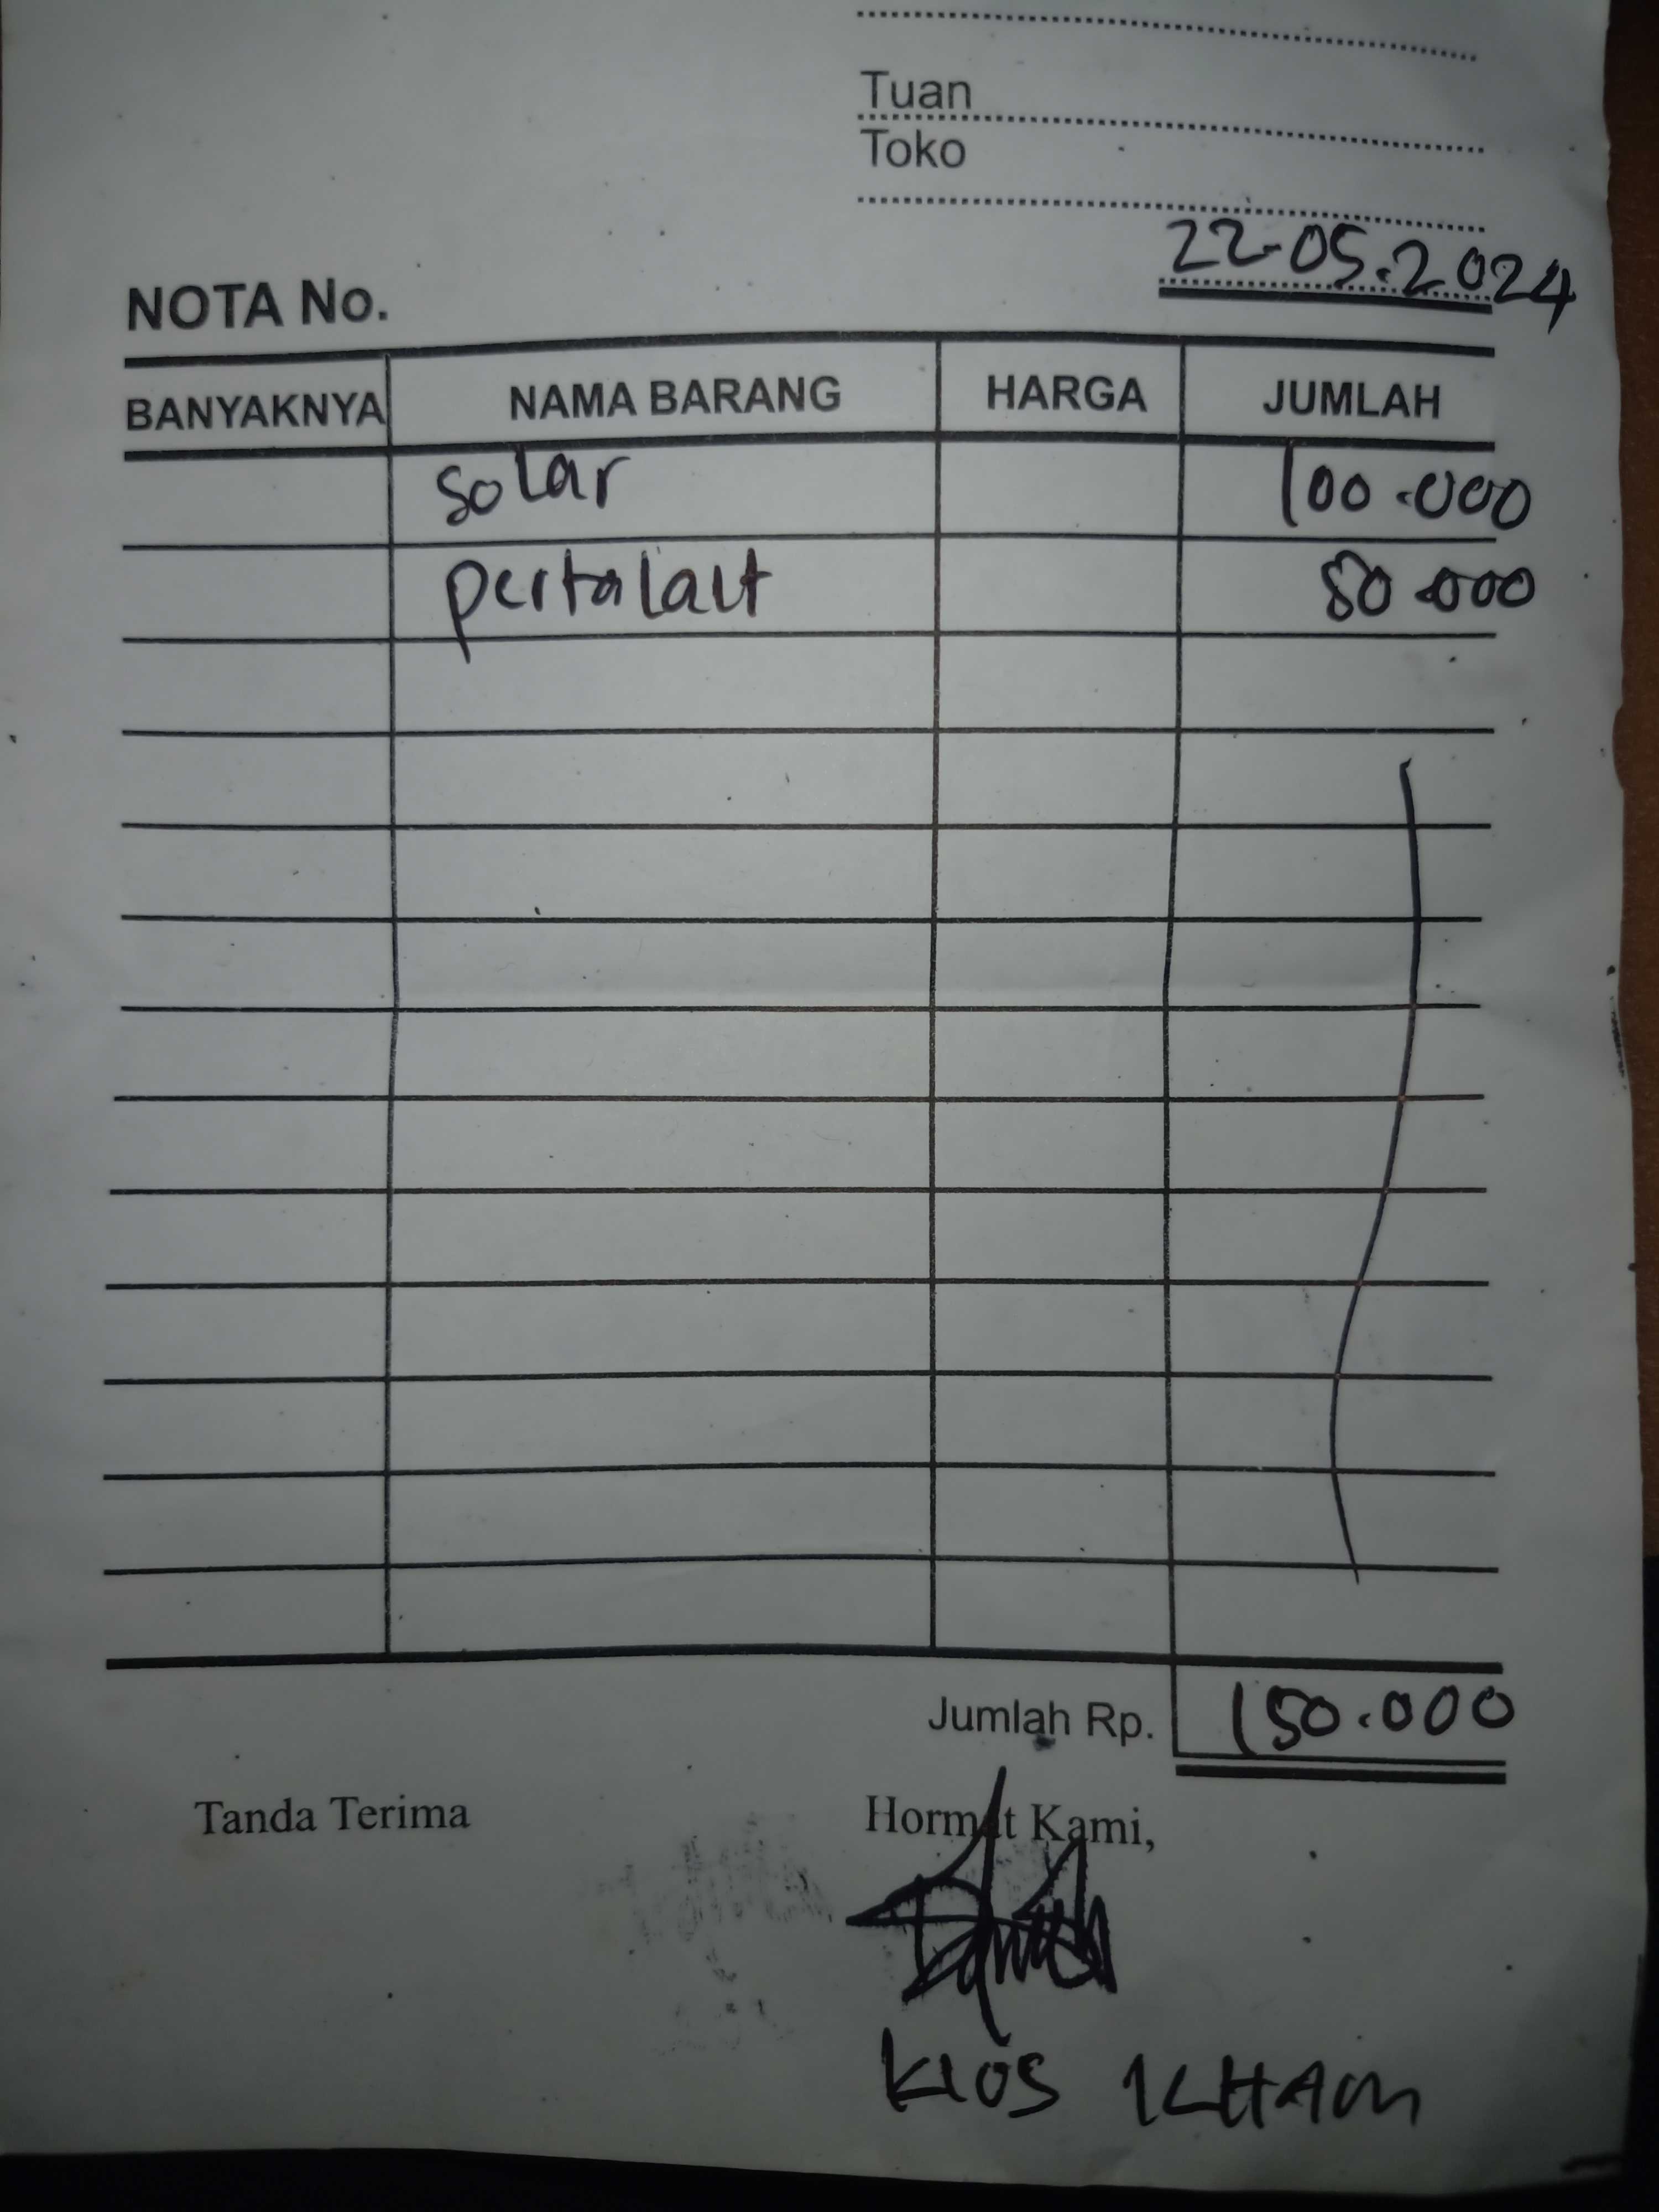 Tuan
Toko
22-05.2024
NOTA No.
BANYAKNYA NAMA BARANG HARGA JUMLAH
solar 100.000
pertalait 50.000
Jumlah Rp. 150.000
Tanda Terima Hormat Kami,
KIOS ILHAM